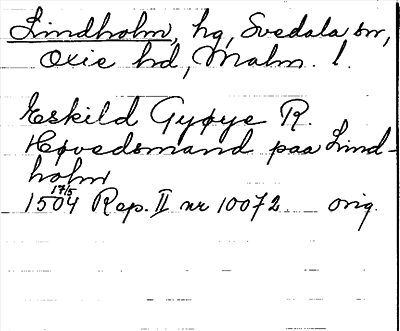 Lindholm, hg, Svedala sn,
Oxie hd, Malm. l.
Eskild Gyøye R.
Høvedsmand paa Lind-
holm
17/5
1504 Rep. II nr 10072 orig.